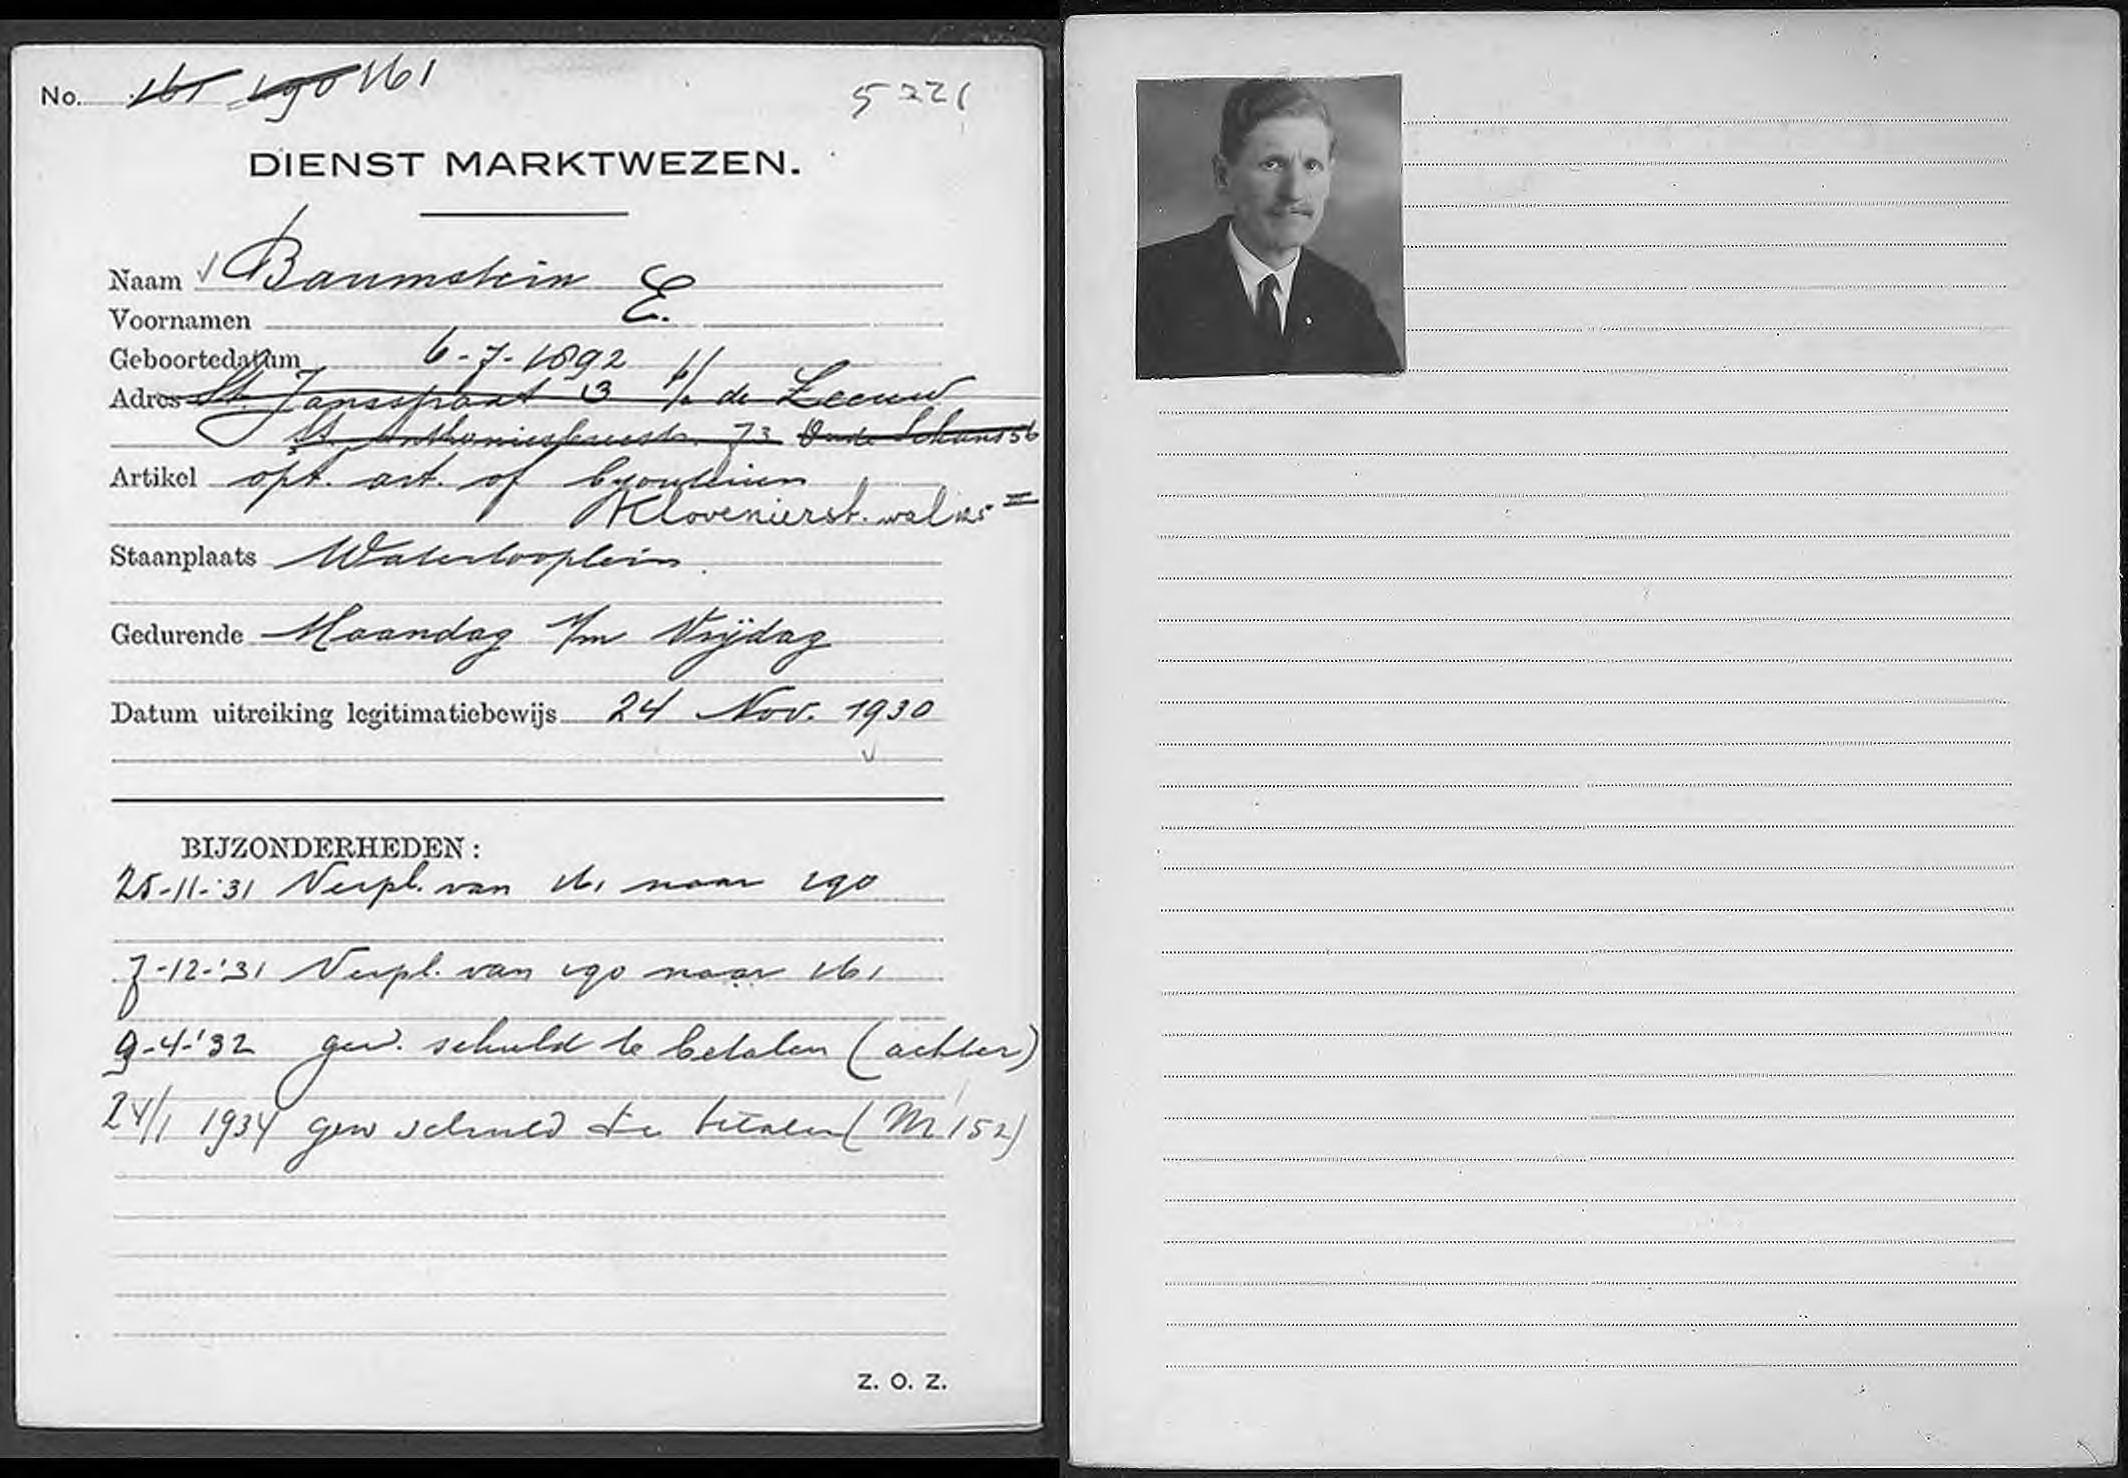 No. 161 190 161
5221
DIENST MARKTWEZEN.
Naam Baumstein
Voornamen E.
Geboortedatum 6-7-1892
Adres St. Jansstraat 13 b/ de Leeuw
St. Anthoniesbreestr. 73 Oude Schans 56
Artikel opt. art. of byouterien
Klovenierst. wal 125 II
Staanplaats Waterlooplein
Gedurende Maandag t/m Vrijdag
Datum uitreiking legitimatiebewijs 24 Nov. 1930
BIJZONDERHEDEN:
25-11-'31 Verpl. van 161 naar 190
7-12-'31 Verpl. van 190 naar 161
9-4-'32 gew. schuld te betalen (achter)
24/1 1934 gew schuld te betalen (M 152)
Z. O. Z.